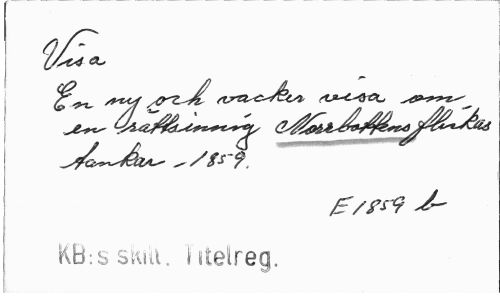 Visa
En ny och vacker visa om
en rättsinnig Norrbottens flickas
tankar - 1859.
E 1859 b
KB:s skill. Titelreg.